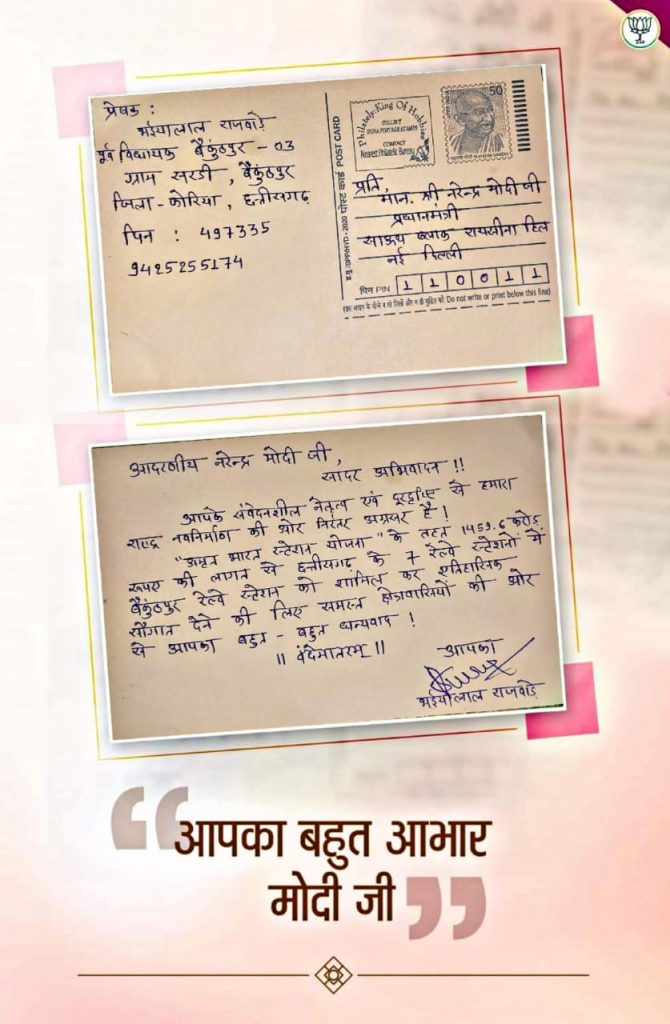 प्रेषक :
भईयालाल राजवाड़े
पूर्व विधायक बैकुंठपुर - 03
ग्राम सरडी, बैकुंठपुर
जिला - कोरिया, छत्तीसगढ़
पिन : 497335
9425255174
पोस्ट कार्ड POST CARD
Philately: King Of Hobbies
COLLECT
INDIA POSTAGE STAMPS
CONTACT
Nearest Philatelic Bureau
50
प्रति,
मान. श्री नरेन्द्र मोदी जी
प्रधानमंत्री
साऊथ ब्लाक रायसीना हिल
नई दिल्ली
पिन PIN 1 1 0 0 1 1
(इस लाइन के नीचे न तो लिखें और न ही मुद्रित करें. Do not write or print below this line)
आदरणीय नरेन्द्र मोदी जी,
सादर अभिवादन !!
आपके संवेदनशील नेतृत्व एवं दूरदृष्टि से हमारा
राष्ट्र नवनिर्माण की ओर निरंतर अग्रसर है !
"अमृत भारत स्टेशन योजना" के तहत 1459.6 करोड़
रूपए की लागत से छत्तीसगढ़ के 7 रेल्वे स्टेशनों में
बैकुंठपुर रेल्वे स्टेशन को शामिल कर ऐतिहासिक
सौगात देने की लिए समस्त क्षेत्रवासियों की ओर
से आपका बहुत - बहुत धन्यवाद !
|| वंदेमातरम् ||
आपका
भईयालाल राजवाड़े
आपका बहुत आभार
मोदी जी